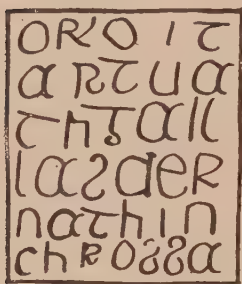 OROIT
ARTUA
THGALL
LASDER
NATHIN
CHROSSA